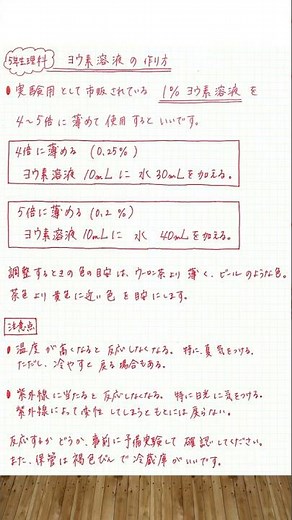 5年生理科 ヨウ素溶液の作り方
• 実験用として市販されている 1% ヨウ素溶液 を
4〜5倍に薄めて使用するといいです。
4倍に薄める (0.25%)
ヨウ素溶液 10mLに 水 30mLを加える。
5倍に薄める (0.2%)
ヨウ素溶液 10mLに 水 40mLを加える。
調整するときの色の目安は、ウーロン茶より薄く、ビールのような色。
茶色より黄色に近い色を目安にします。
注意点
• 温度が高くなると反応しなくなる。特に夏気をつける。
ただし、冷やすと戻る場合もある。
• 紫外線に当たると反応しなくなる。特に日光に気をつける。
紫外線によって変性してしまうともとには戻らない。
反応するかどうか、事前に予備実験して確認してください。
また、保管は褐色びんで冷蔵庫がいいです。